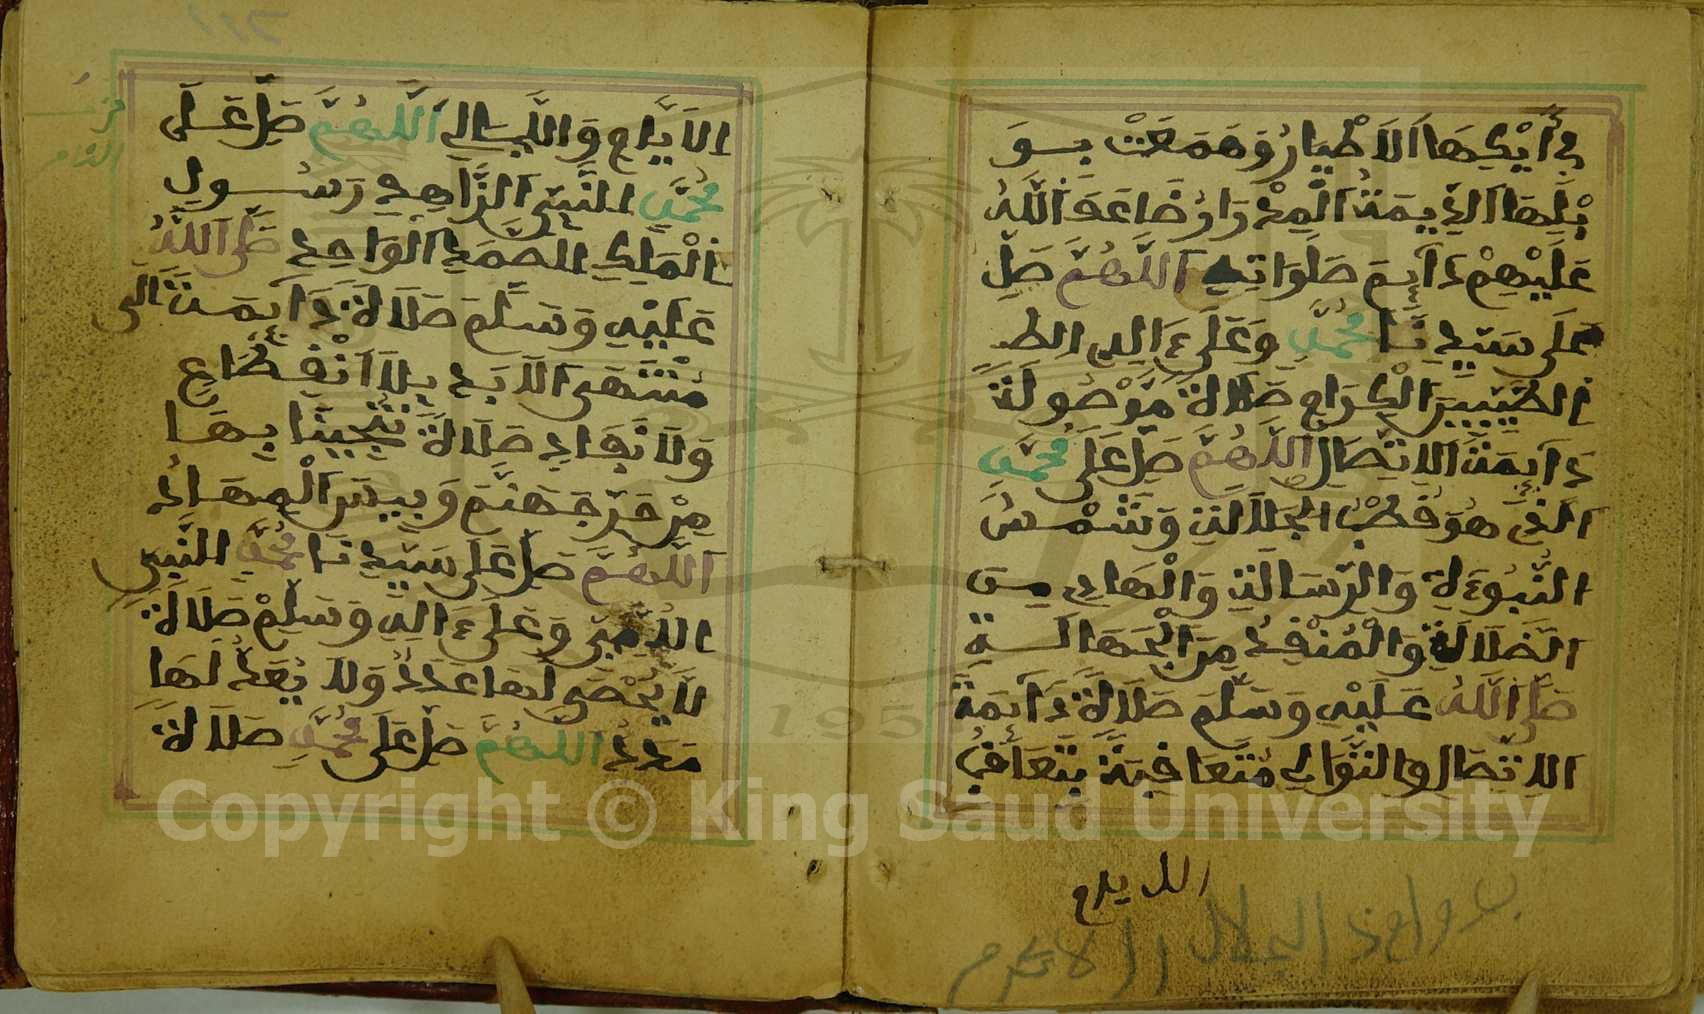 فِي أَيْكِهَا الْأَطْيَارُ وَهَمَعَتْ بِوَ
بْلِهَا الدِّيمَةُ الْمِدْرَارُ ضَاعَفَ اللَّهُ
عَلَيْهِمْ دَائِمَ صَلَوَاتِهِ اللَّهُمَّ صَلِّ
عَلَى سَيِّدِنَا مُحَمَّدٍ وَعَلَى ءَالِهِ الط
الطَّيِّبِينَ الْكِرَامِ صَلَاةً مَوْصُولَةً
دَائِمَةَ الِاتِّصَالِ اللَّهُمَّ صَلِّ عَلَى مُحَمَّدٍ
الَّذِي هُوَ قُطْبُ الْجَلَالَةِ وَشَمْسُ
النُّبُوءَةِ وَالرِّسَالَةِ وَالْهَادِي مِنَ
الضَّلَالَةِ وَالْمُنْقِذُ مِنَ الْجَهَالَةِ
صَلَّى اللَّهُ عَلَيْهِ وَسَلَّمَ صَلَاةً دَائِمَةَ
الِاتِّصَالِ وَالتَّوَالِي مُتَعَاقِبَةً بِتَعَاقُبِ
الايام
الْأَيَّامِ وَاللَّيَالِي اللَّهُمَّ صَلِّ عَلَى
مُحَمَّدٍ النَّبِيِّ الزَّاهِدِ رَسُولِ
الْمَلِكِ الصَّمَدِ الْوَاحِدِ صَلَّى اللَّهُ
عَلَيْهِ وَسَلَّمَ صَلَاةً دَائِمَةً إلى
مُنْتَهَى الْأَبَدِ بِلَا انْقِطَاعٍ
وَلَا نَفَادٍ صَلَاةً تُنْجِينَا بِهَا
مِنْ حَرِّ جَهَنَّمَ وَبِيسَ الْمِهَادُ
اللَّهُمَّ صَلِّ عَلَى سَيِّدِنَا مُحَمَّدٍ النَّبِيِّ
الْأُمِّيِّ وَعَلَى ءَالِهِ وَسَلِّمْ صَلَاةً
لَا يُحْصَى لَهَا عَدَدٌ وَلَا يُعَدُّ لَهَا
مَدَدٌ اللَّهُمَّ صَلِّ عَلَى مُحَمَّدٍ صَلَاةً
Copyright © King Saud University
1957